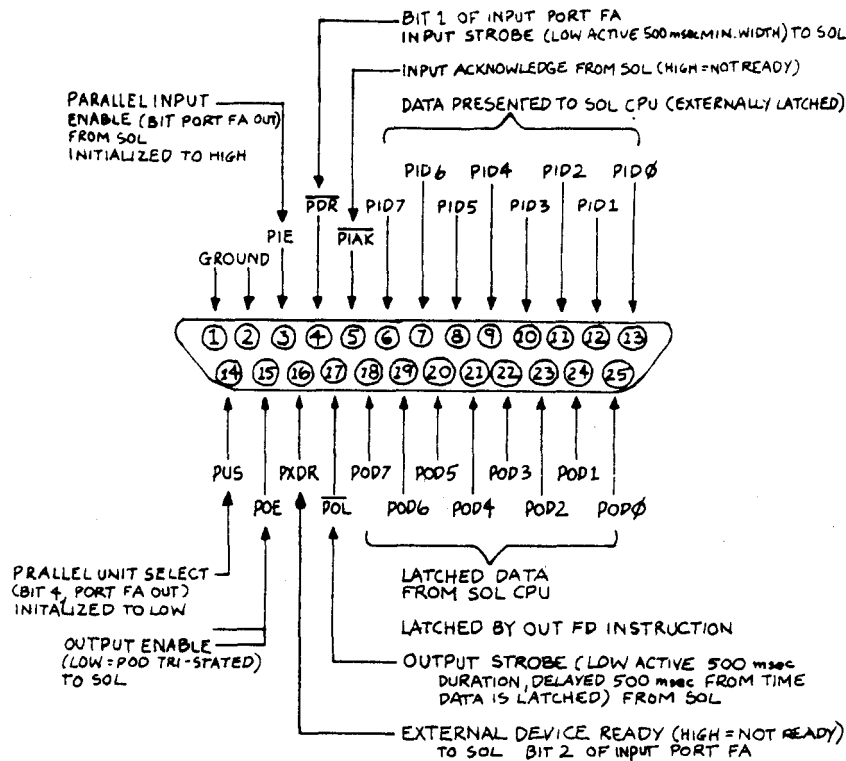 BIT 1 OF INPUT PORT FA
INPUT STROBE (LOW ACTIVE 500 msec MIN. WIDTH) TO SOL
INPUT ACKNOWLEDGE FROM SOL (HIGH = NOT READY)
PARALLEL INPUT
ENABLE (BIT PORT FA OUT)
FROM SOL
INITIALIZED TO HIGH
DATA PRESENTED TO SOL CPU (EXTERNALLY LATCHED)
PID6 PID4 PID2 PIDØ
PDR PID7 PID5 PID3 PID1
PIE PIAK
GROUND
1 2 3 4 5 6 7 8 9 10 11 12 13
14 15 16 17 18 19 20 21 22 23 24 25
PUS PXDR POD7 POD5 POD3 POD1
POE POL POD6 POD4 POD2 PODØ
PRALLEL UNIT SELECT
(BIT 4, PORT FA OUT)
INITALIZED TO LOW
OUTPUT ENABLE
(LOW = POD TRI-STATED)
TO SOL
LATCHED DATA
FROM SOL CPU
LATCHED BY OUT FD INSTRUCTION
OUTPUT STROBE (LOW ACTIVE 500 msec
DURATION, DELAYED 500 msec FROM TIME
DATA IS LATCHED) FROM SOL
EXTERNAL DEVICE READY (HIGH = NOT READY)
TO SOL BIT 2 OF INPUT PORT FA